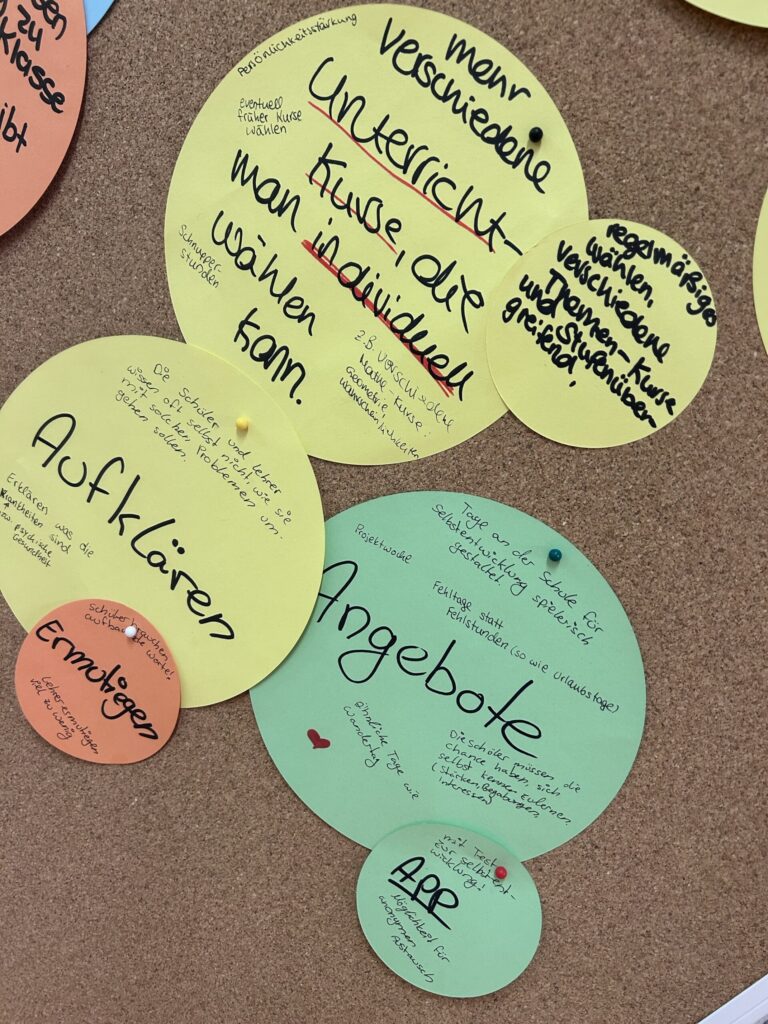 zu
Klasse
ibt
Persönlichkeitsstärkung
mehr
verschiedene
Unterricht-
Kurse, die
man individuell
wählen
kann.
eventuell
früher Kurse
wählen
Schnupper-
stunden
z.B. verschiedene
Mathe-Kurse:
Geometrie,
Wahrscheinlichkeiten
regelmäßiges
wählen,
verschiedene
Themen-Kurse
und Stufenüber-
greifend,
Die Schüler und Lehrer
wissen oft selbst nicht, wie sie
mit solchen Problemen um-
gehen sollen.
Aufklären
Erklären was die
Krankheiten sind
bzw. psychische
Gesundheit
schüler brauchen
aufbauende worte!
Ermutiegen
Lehrer ermutiegen
viel zu wenig
Tage an der Schule für
Selbstentwicklung spielerisch
gestaltet.
Projektwoche
Fehltage statt
Fehlstunden (so wie Urlaubstage)
Angebote
ähnliche Tage wie
Wandertag
Die schüler müssen die
chance haben, sich
selbst kennen zu lernen.
(Stärken, Begabungen,
Interessen)
mit Tests
zur selbstent-
wicklung!
APP
Möglichkeit für
anonymen
Austausch